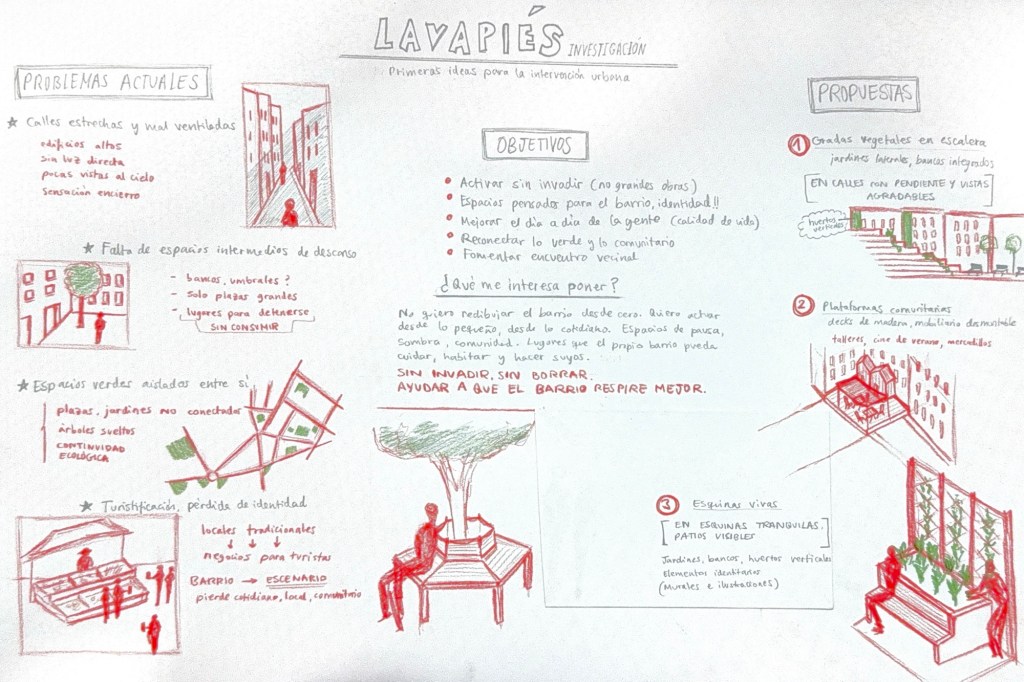 LAVAPIÉS INVESTIGACIÓN
Primeras ideas para la intervención urbana
PROBLEMAS ACTUALES
★ Calles estrechas y mal ventiladas
edificios altos
sin luz directa
pocas vistas al cielo
sensación encierro
★ Falta de espacios intermedios de descanso
- bancos, umbrales?
- Solo plazas grandes
- lugares para detenerse
SIN CONSUMIR
★ Espacios verdes aislados entre sí
plazas, jardines NO conectados
árboles sueltos
CONTINUIDAD
ECOLÓGICA
★ Turistificación, pérdida de identidad
locales tradicionales
↓ ↓ ↓
negocios para turistas
BARRIO → ESCENARIO
pierde cotidiano, local, comunitario
OBJETIVOS
• Activar sin invadir (no grandes obras)
• Espacios pensados para el barrio, identidad!!
• Mejorar el día a día de la gente (calidad de vida)
• Reconectar lo verde y lo comunitario
• Fomentar encuentro vecinal
¿Qué me interesa poner?
No quiero redibujar el barrio desde cero. Quiero actuar
desde lo pequeño, desde lo cotidiano. Espacios de pausa,
sombra, comunidad. Lugares que el propio barrio pueda
cuidar, habitar y hacer suyos.
SIN INVADIR, SIN BORRAR.
AYUDAR A QUE EL BARRIO RESPIRE MEJOR.
PROPUESTAS
1 Gradas vegetales en escalera
jardines laterales, bancos integrados
[EN CALLES CON PENDIENTE Y VISTAS
AGRADABLES]
huertos
verticales
2 Plataformas comunitarias
decks de madera, mobiliario desmontable
talleres, cine de verano, mercadillos
3 Esquinas vivas
[EN ESQUINAS TRANQUILAS.
PATIOS VISIBLES]
Jardines, bancos, huertos verticales
Elementos identitarios
(Murales e ilustraciones)